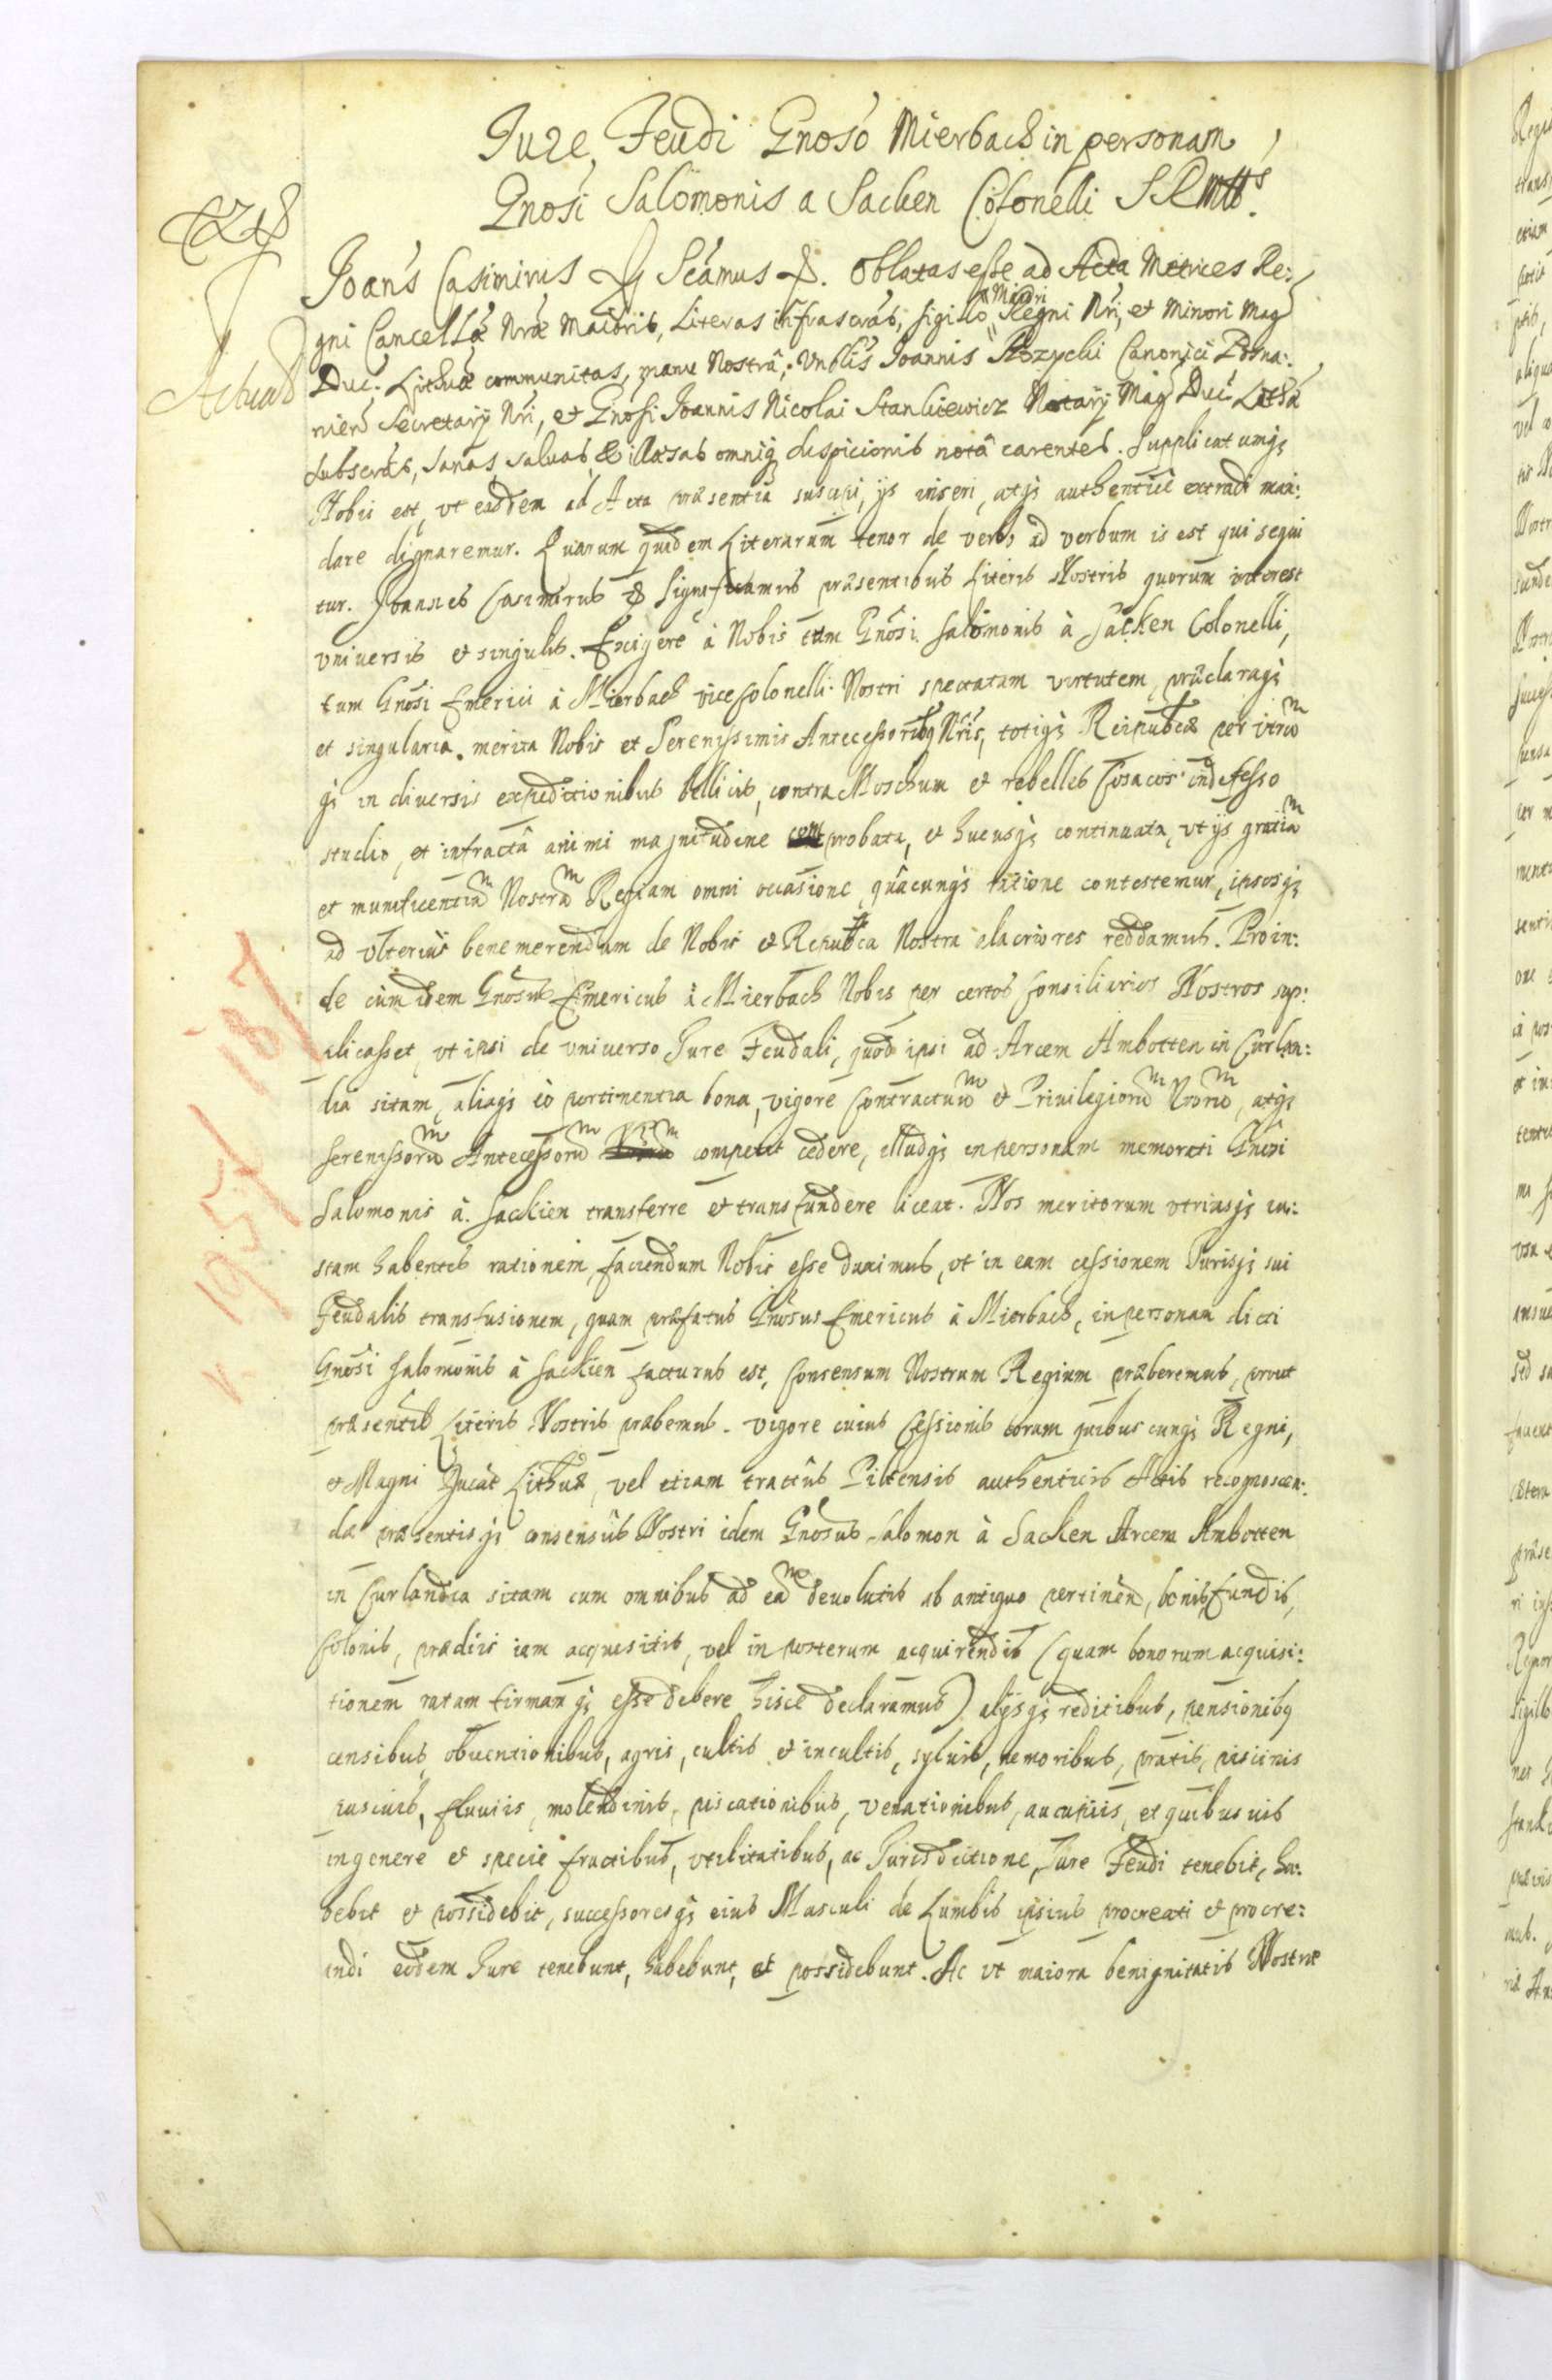 Jure Feudi Gnoso Mierbach in personam
Gnosi Salomonis a Sacken Colonelli S R Mttis.
Joans Casimirus Scamus &. Oblatas esse ad Acta Metrices Re:
gni Cancellæ Nræ Maioris, Literas infrascras, sigillo Maiori Regni Nri, et Minori Mag
Duc. Lithuæ communitas, manu Nostrâ, Joannis Canonici Posna:
nien Secretarij Nri, et Gnosi Joannis Nicolai Stankiewicz Notarij Mag Duc Lith
subscras, sanas salvas & illæsas omniq suspicionis notâ carentes. Supplicatumq
Nobis est, vt easdem ad Acta præsentia suscipi, ijs inseri, atq authentice extradi man:
dare dignaremur. Quarum quidem Literarum tenor de verbo ad verbum is est qui sequi
tur. Joannes Casimirus & Significamus præsentibus Literis Nostris quorum interest
vniversis et singulis. Exigere à Nobis tum Gnosi Salomonis à Sacken Colonelli,
tum Gnosi Emerici à Mierbach vice Colonelli Nostri spectatam virtutem, præclaraq
et singularia merita Nobis et Serenissimis Antecessoribq Nris, totiq Reipubcæ per vtrum
q in diversis expeditionibus bellicis, contra Moschum et rebelles Cosacos indefesso
studio, et infractâ animi magnitudine comprobata, et hucusq continuata, vt ijs gratiam
et munificentiam Nostram Regiam omni occasione, quâcunq ratione contestemur, ipsosq
ad vlterius benemerendum de Nobis et Repubca Nostra alacriores reddamus. Proin:
de cùm idem Gnosus Emericus à Mierbach Nobis per certos Consiliarios Nostros sup:
plicasset, vt ipsi de vniverso Jure Feudali, quod ipsi ad Arcem Ambotten in Curlan:
dia sitam, aliaq eò pertinentia bona, vigore Contractuum et Privilegiorum Nrorum, atq
Serenissorum Antecessorum competit cedere, illudq in personam memorati Gnosi
Salomonis à Sackien transferre et transfundere liceat. Nos meritorum vtriusq iu:
stam habentes rationem, faciendum Nobis esse duximus, vt in eam cessionem Jurisq sui
Feudalis transfusionem, quam præfatus Gnosus Emericus à Mierbach, in personam dicti
Gnosi Salomonis à Sackien facturus est, Consensum Nostrum Regium præberemus, prout
præsentib Literis Nostris præbemus. Vigore cuius Cessionis coram quibuscunq Regni,
et Magni Ducat Lithuæ, vel etiam tractûs Piltensis authenticis Actis recognoscen:
dæ præsentisq consensûs Nostri idem Gnosus Salomon à Sacken Arcem Ambotten
in Curlandia sitam cum omnibus ad eam devolutis ab antiquo pertinen, bonis, fundis,
Colonis, prædiis iam acquisitis, vel in posterum acquirendis (quam bonorum acquisi:
tionem ratam firmamq esse debere hisce declaramus) alijsq reditibus, pensionibq
censibus, obventionibus, agris, cultis et incultis, syluis, nemoribus, pratis, piscinis
pascuis, fluuiis, molendinis, piscationibus, venationibus, aucupiis, et quibusvis
in genere et specie fructibus, vtilitatibus, ac Jurisdictione, Jure Feudi tenebit, ha:
bebit et possidebit, successoresq eius Masculi de Lumbis ipsius procreati et procre:
andi eodem Jure tenebunt, habebunt, et possidebunt. Ac vt maiora benignitatis Nostræ